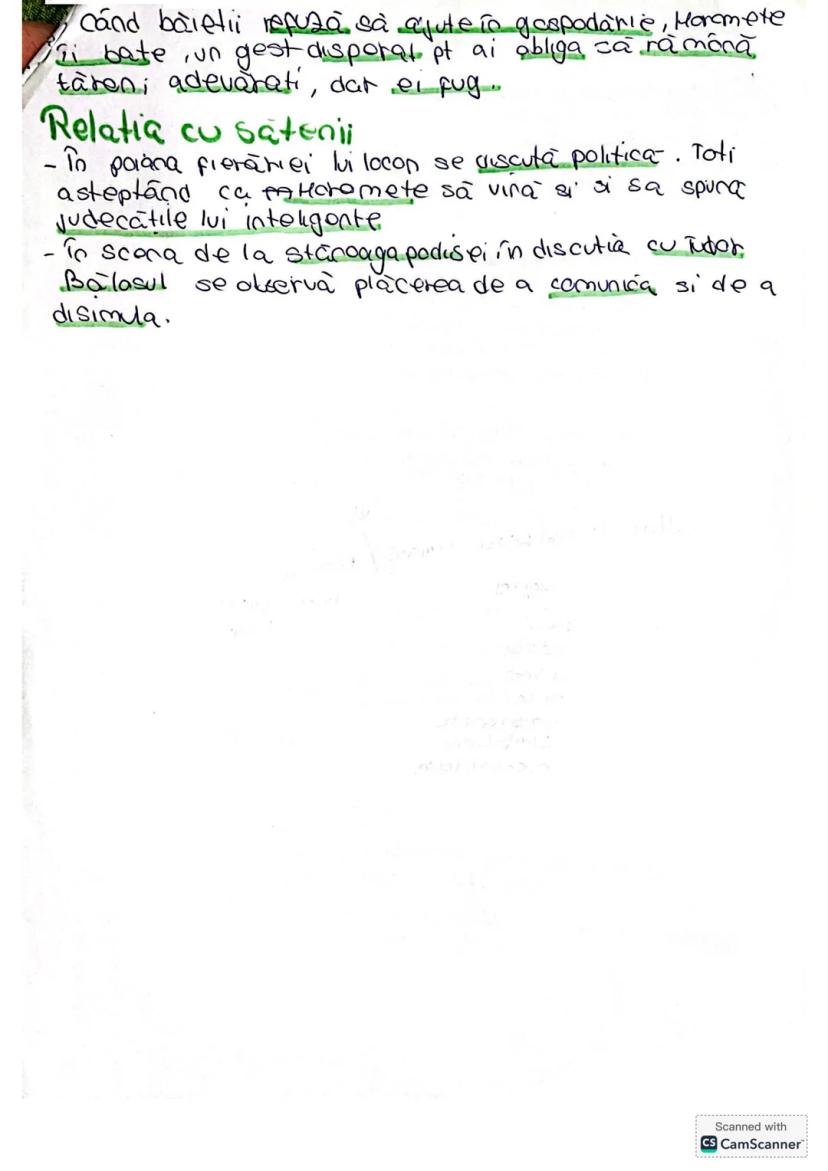 când băieții refuză să ajute în gospodărie, Moromete
îi bate, un gest disperat pt ai obliga să rămână
țăreni adevărați, dar ei fug.
Relația cu sătenii
- În poiana fierăriei lui Iocan se discută politică. Toți
așteptând ca Moromete să vină și și sa spună
judecățile lui inteligente
- în scena de la stănoaga podișei în discuția cu Tudor
Bălosul se observă plăcerea de a comunica și de a
disimula.
Scanned with
CS CamScanner